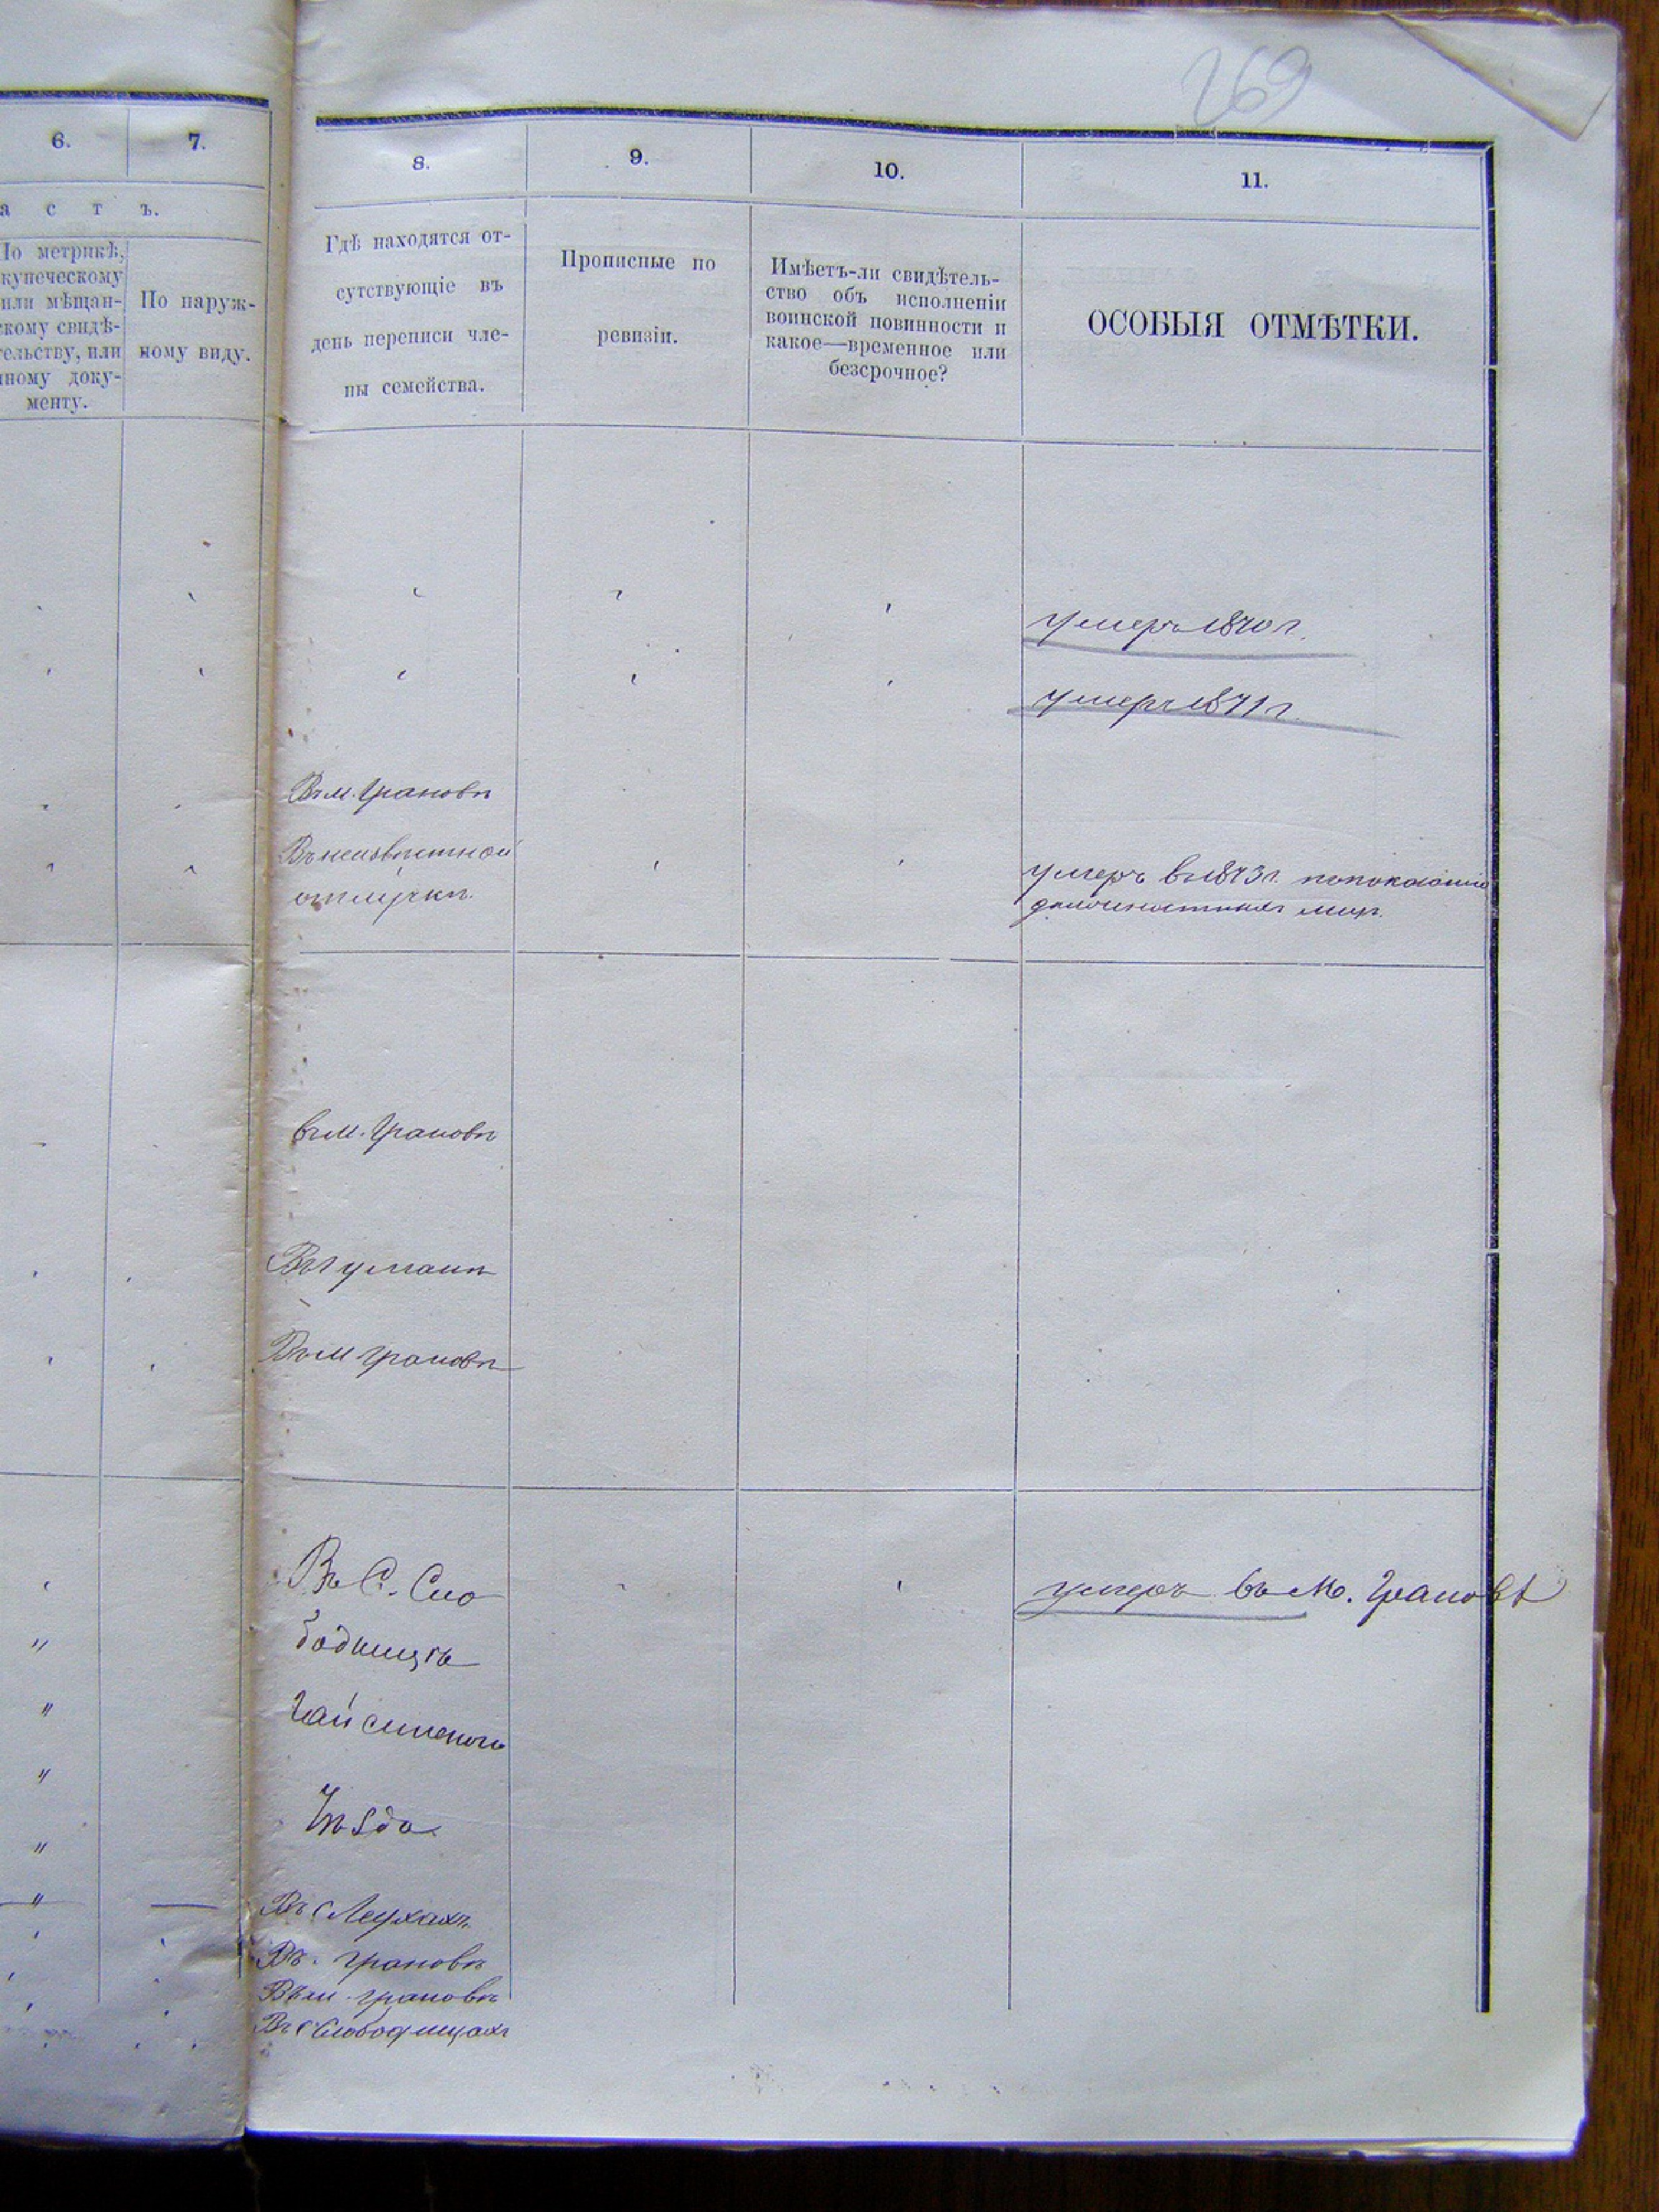 269
6.
7.
8.
9.
10.
11.
а с т ъ.
По метрикѣ,
купеческому
или мѣщан-
скому свидѣ-
тельству, или
иному доку-
менту.
По наруж-
ному виду.
Гдѣ находятся от-
сутствующіе въ
день переписи чле-
ны семейства.
Прописные по
ревизіи.
Имѣетъ-ли свидѣтель-
ство объ исполненіи
воинской повинности и
какое—временное или
безсрочное?
ОСОБЫЯ ОТМѢТКИ.
умеръ 1870 г.
умеръ 1871 г.
Въ м. Грановѣ
Въ неизвѣстной
отлучкѣ.
умеръ въ 1873 г. по показанію
Въ м. Грановѣ
Въ г Умани
Въ м Грановѣ
Въ С. Сло
бодищѣ
Гайсинскаго
Уѣзда
умеръ въ М. Грановѣ
Въ с Леухахъ
Въ. Грановѣ
Въ м. Грановѣ
Въ с Слободищахъ